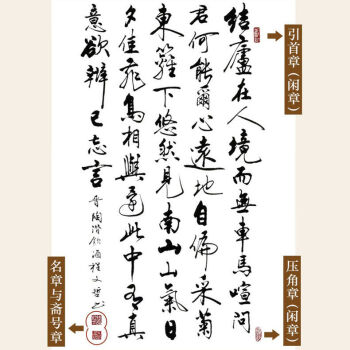 结廬在人境而無車馬喧问
君何能爾心遠地自偏采菊
東籬下悠然見南山山氣日
夕佳飛鳥相與還此中有真
意欲辨已忘言
晋陶潜饮酒程文
引首章（闲章）
压角章（闲章）
名章与斋号章